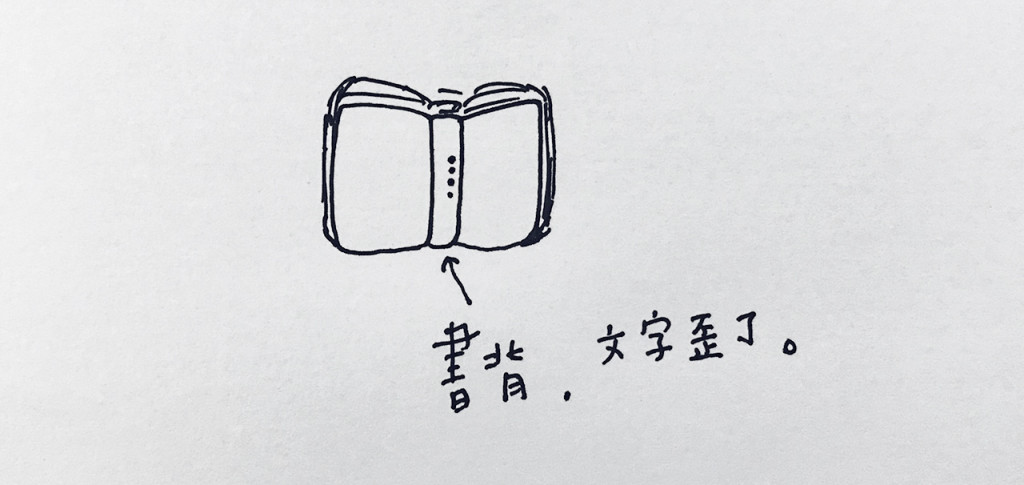 書背，文字歪了。